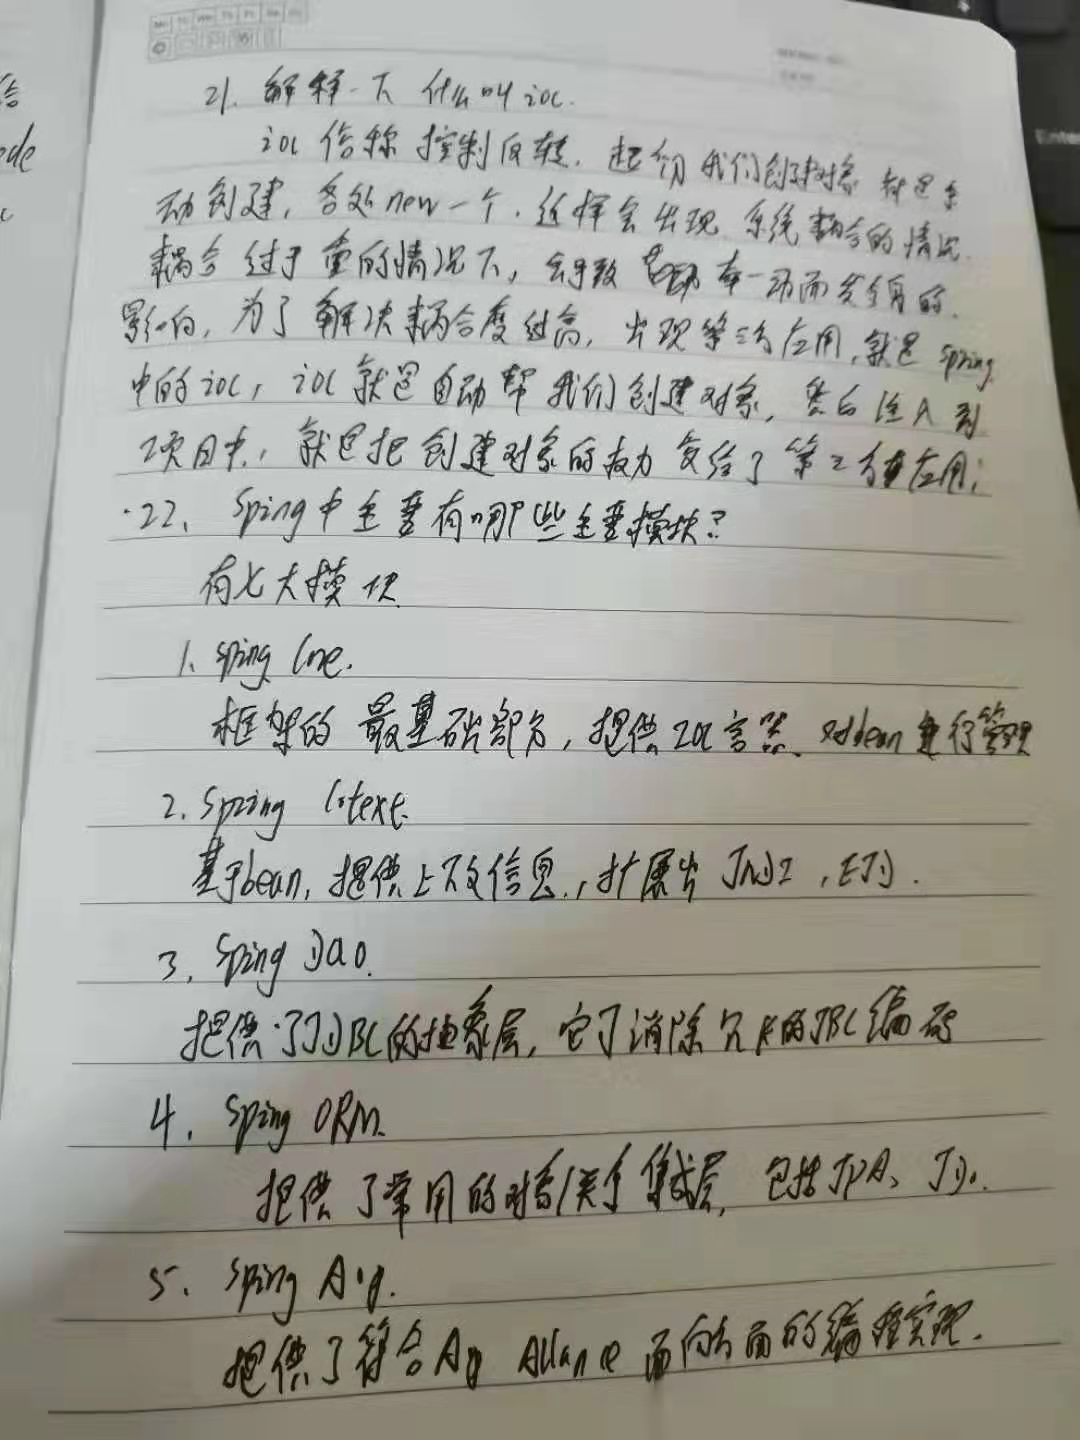 21. 解释一下什么叫ioc.
ioc 俗称控制反转. 起初我们创建对象都是手
动创建, 各处new一个. 这样会出现系统耦合的情况.
耦合过于重的情况下, 会导致牵一动而发全身的.
影响, 为了解决耦合度过高, 出现第三方应用, 就是spring
中的ioc, ioc就是自动帮我们创建对象, 然后注入到
项目中, 就是把创建对象的权力交给了第三方应用;
22. Sping中主要有哪些主要模块?
有七大模块
1. Sping Core.
框架的最基础部分, 提供IOC容器、对bean进行管理
2. Spring Cotext.
基于bean, 提供上下文信息., 扩展出JNDI, EJB.
3. Sping DAO.
提供了JDBC的抽象层, 它可消除冗长的JBC编码
4. Sping ORM.
提供了常用的对象/关系集成层, 包括JPA、JDo.
5. Sping Aop.
提供了符合Aop Allance面向方面的编程实现.